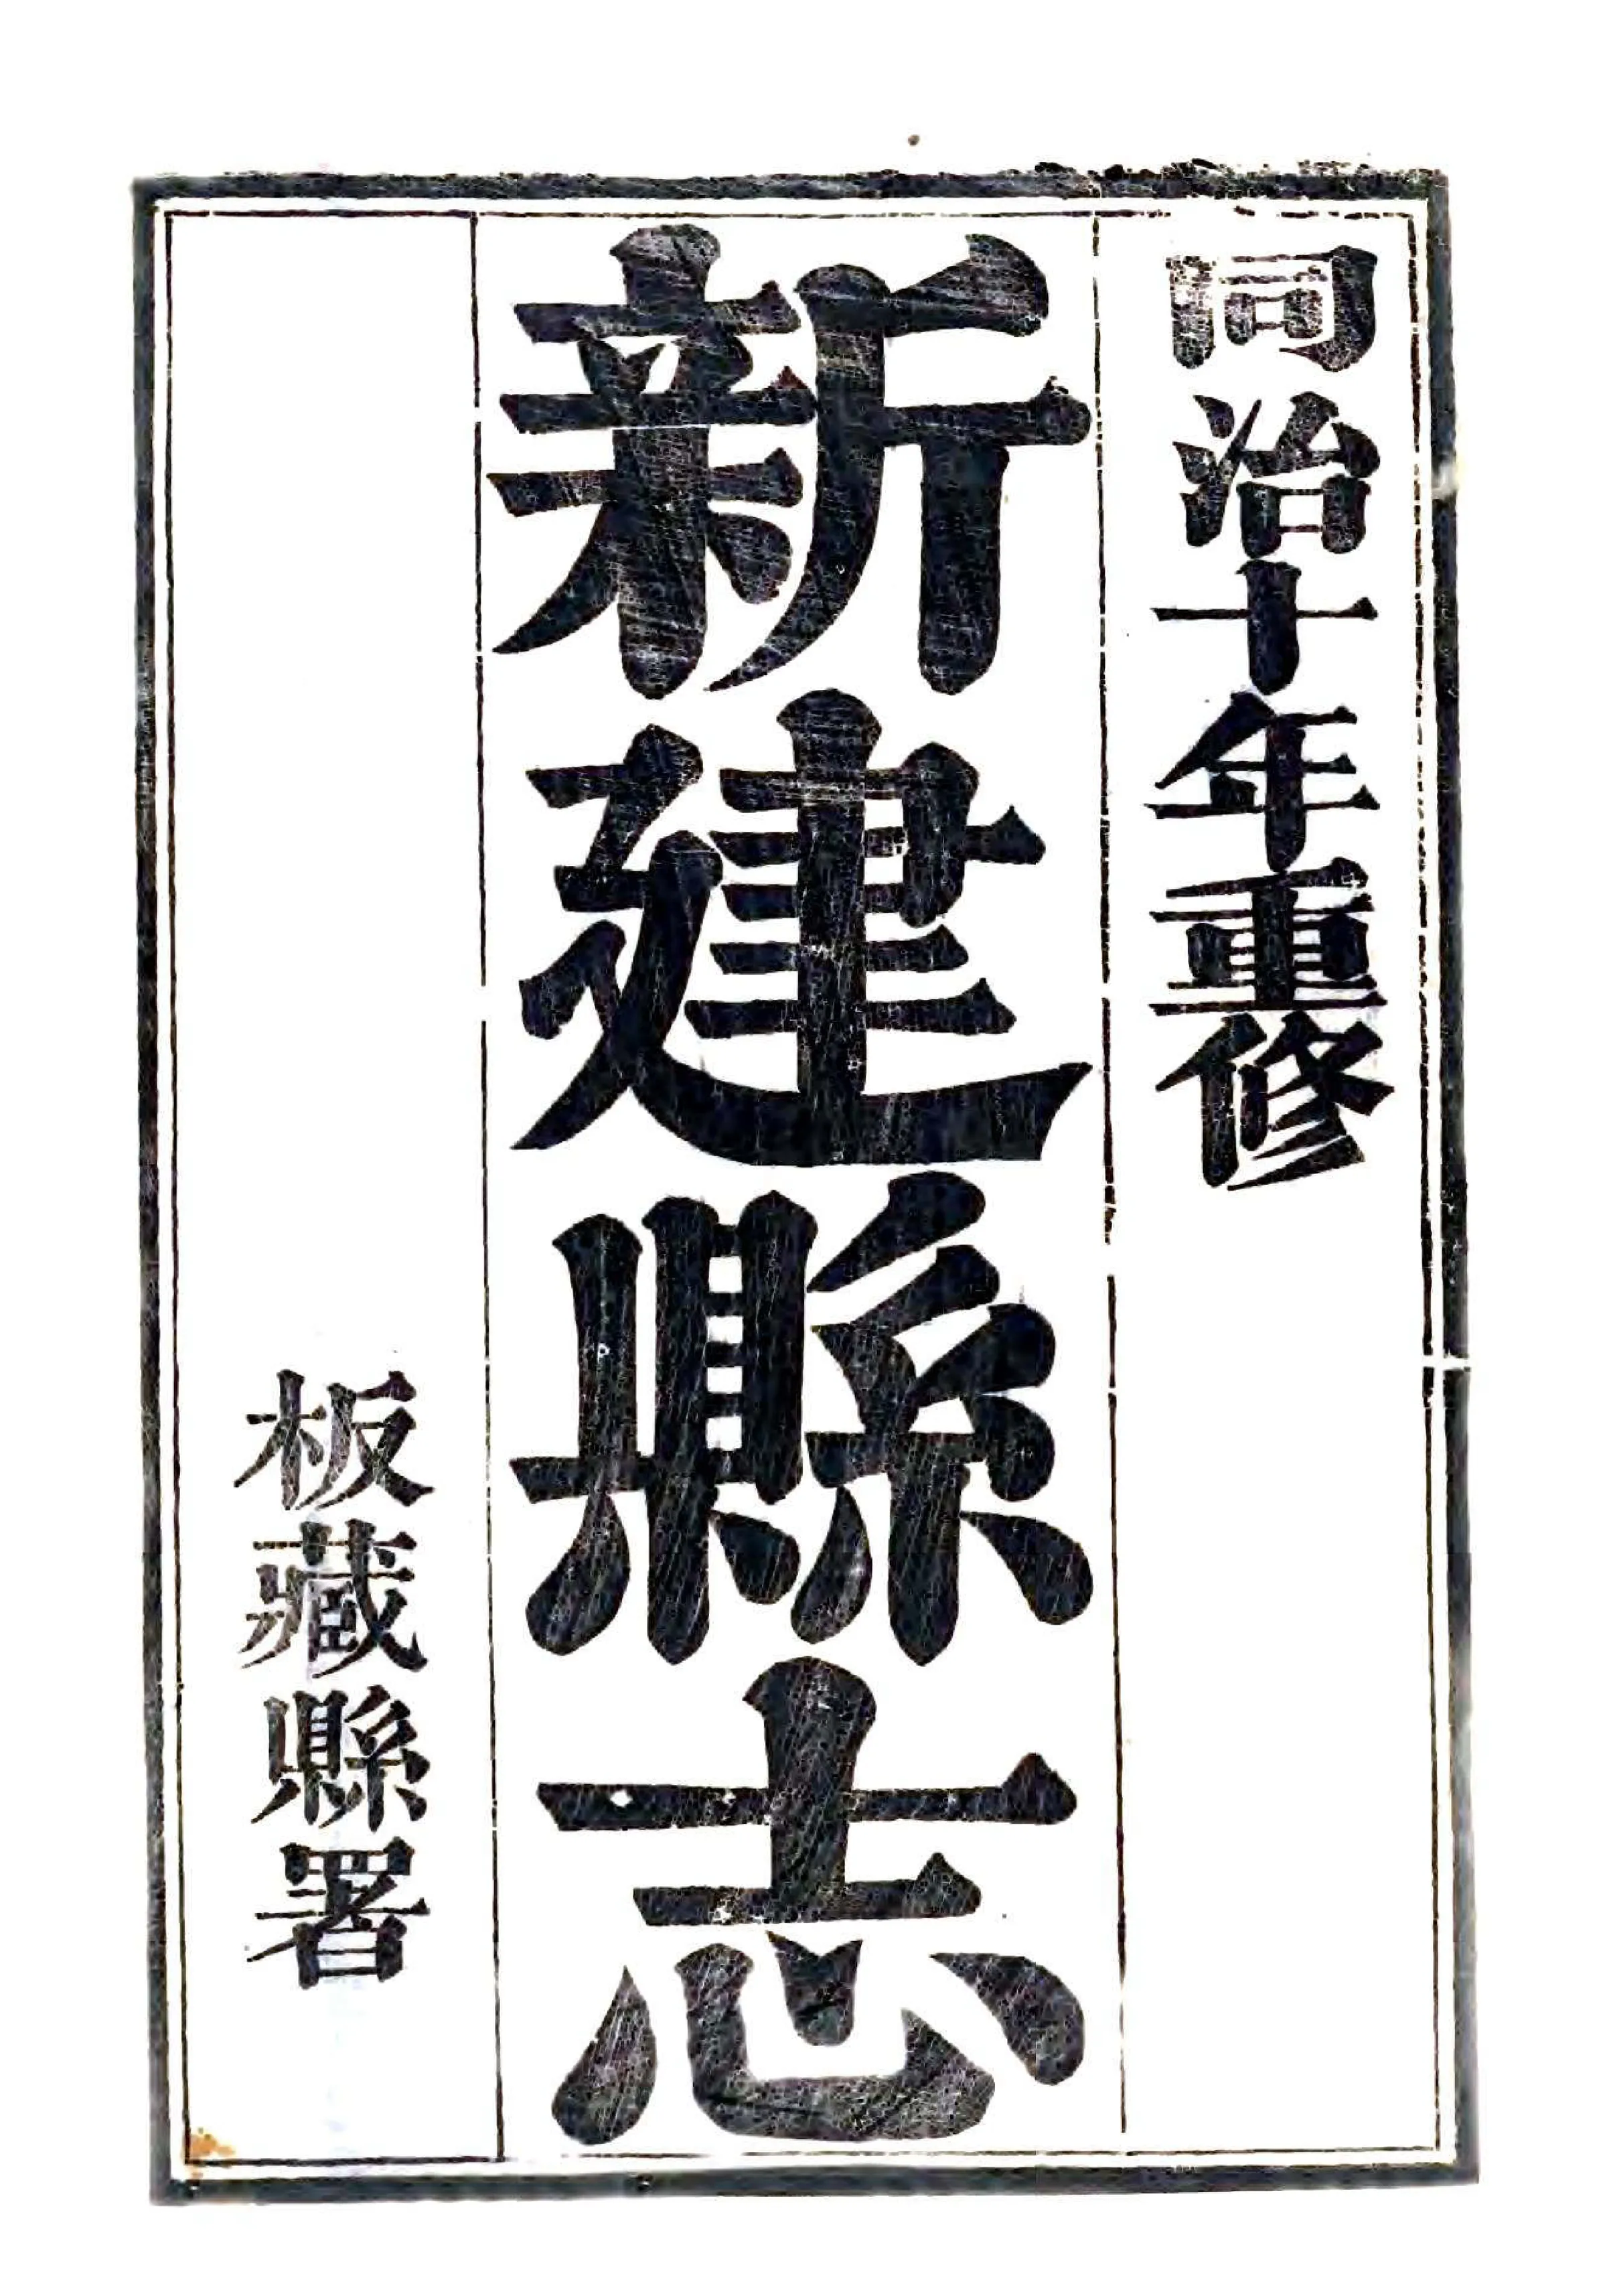 同治十年重修
新建縣志
板藏縣署